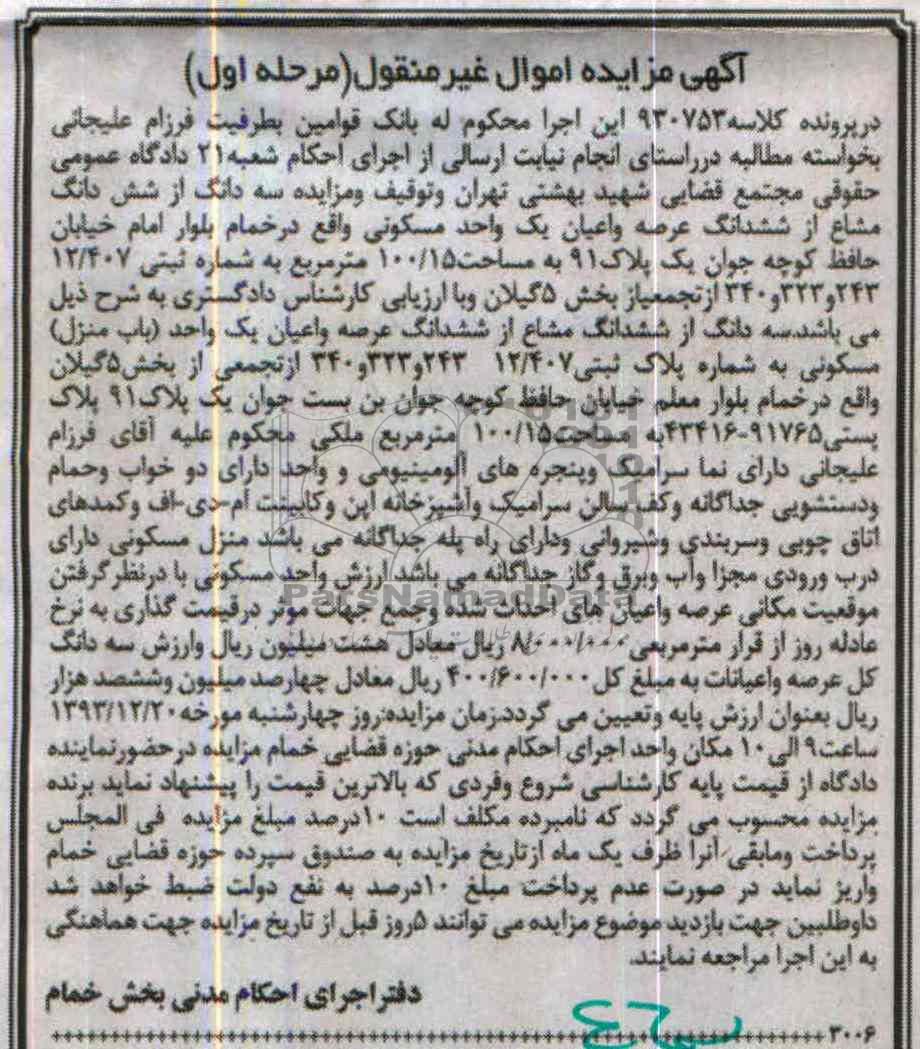 آگهی مزایده اموال غیر منقول(مرحله اول)
درپرونده کلاسه۹۳۰۷۵۳ این اجرا محکوم له بانک قوامین بطرفیت فرزام علیجانی
بخواسته مطالبه درراستای انجام نیابت ارسالی از اجرای احکام شعبه۲۱ دادگاه عمومی
حقوقی مجتمع قضایی شهید بهشتی تهران وتوقیف ومزایده سه دانگ از شش دانگ
مشاع از ششدانگ عرصه واعیان یک واحد مسکونی واقع درخمام بلوار امام خیابان
حافظ کوچه جوان یک پلاک۹۱ به مساحت۱۰۰/۱۵ مترمربع به شماره ثبتی ۱۲/۴۰۷
۲۴۳و۳۲۳و۳۴۰ ازتجمعیاز بخش ۵گیلان وبا ارزیابی کارشناس دادگستری به شرح ذیل
می باشد.سه دانگ از ششدانگ مشاع از ششدانگ عرصه واعیان یک واحد (باب منزل)
مسکونی به شماره پلاک ثبتی۱۲/۴۰۷ ۲۴۳و۳۲۳و۳۴۰ ازتجمعی از بخش۵گیلان
واقع درخمام بلوار معلم خیابان حافظ کوچه جوان بن بست جوان یک پلاک۹۱ پلاک
پستی۹۱۷۶۵-۴۳۴۱۶به مساحت۱۰۰/۱۵ مترمربع ملکی محکوم علیه آقای فرزام
علیجانی دارای نما سرامیک وپنجره های آلومینیومی و واحد دارای دو خواب وحمام
ودستشویی جداگانه وکف سالن سرامیک وآشپزخانه اپن وکابینت ام-دی-اف وکمدهای
اتاق چوبی وسربندی وشیروانی ودارای راه پله جداگانه می باشد منزل مسکونی دارای
درب ورودی مجزا وآب وبرق وگاز جداگانه می باشد ارزش واحد مسکونی با درنظر گرفتن
ParsNamadData
موقعیت مکانی عرصه واعیان های احداث شده وجمیع جهات موثر درقیمت گذاری به نرخ
عادله روز از قرار مترمربعی ۸/۰۰۰/۰۰۰ ریال معادل هشت میلیون ریال وارزش سه دانگ
کل عرصه واعیانات به مبلغ کل۴۰۰/۶۰۰/۰۰۰ ریال معادل چهارصد میلیون وششصد هزار
ریال بعنوان ارزش پایه وتعیین می گردد.زمان مزایده:روز چهارشنبه مورخه۱۳۹۳/۱۲/۲۰
ساعت۹ الی۱۰ مکان واحد اجرای احکام مدنی حوزه قضایی خمام مزایده درحضورنماینده
دادگاه از قیمت پایه کارشناسی شروع وفردی که بالاترین قیمت را پیشنهاد نماید برنده
مزایده محسوب می گردد که نامبرده مکلف است ۱۰درصد مبلغ مزایده فی المجلس
پرداخت ومابقی آنرا ظرف یک ماه ازتاریخ مزایده به صندوق سپرده حوزه قضایی خمام
واریز نماید در صورت عدم پرداخت مبلغ ۱۰درصد به نفع دولت ضبط خواهد شد
داوطلبین جهت بازدید موضوع مزایده می توانند ۵روز قبل از تاریخ مزایده جهت هماهنگی
به این اجرا مراجعه نمایند.
دفتراجرای احکام مدنی بخش خمام
۳۰۰۶